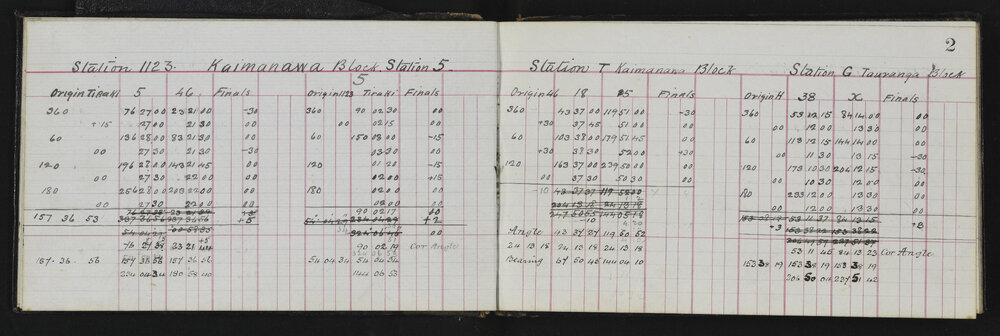 2
Station 1123. Kaimanawa Block. Station 5.
5
Origin Tiraki 5 46 Finals Origin 1123 Tiraki Finals
360 76 27 00 23 21 00 -30 360 90 02 30 00
+15 27 00 21 30 00 00 02 15 00
60 136 28 00 83 21 30 00 60 150 02 00 -15
00 27 30 21 30 -30 03 30 00
120 196 28 00 143 21 45 00 120 01 20 -15
00 02 00 +15
180 256 28 00 203 22 00 00 180 02 00 00
00 27 30 22 00 00 00 02 00 00
90 02 17
157 36 53 +5 +2
76 27 33 23 21 90 02 19 Cor Angle
157. 36. 56 157 36 56 157 36 56 54 04 34 54 04 34
234 04 34 180 58 40 144 06 53
Station T Kaimanawa Block Station G Tauranga Block
Origin 46 18 5 Finals Origin H 38 X Finals
360 43 37 00 119 51 00 -30 360 53 02 15 84 14 00 00
+30 37 45 51 00 00 00 12 00 13 30 00
60 103 38 00 179 51 45 00 60 113 12 15 144 14 00 00
+30 38 30 52 00 +30 00 11 30 13 15 -30
120 163 37 00 239 50 00 00 120 173 10 30 204 12 15 -30
00 37 30 50 30 00 00 10 30 12 00 00
-10 180 233 12 00 13 30 00
00 12 00 13 30 00
-10 +3 +8
Angle 43 37 37 119 50 52
24 13 18 24 13 18 24 13 18 53 11 45 84 13 23 Cor Angle
Bearing 67 50 45 144 04 10 153 38 19 153 38 19 153 38 19
206 50 04 237 51 42